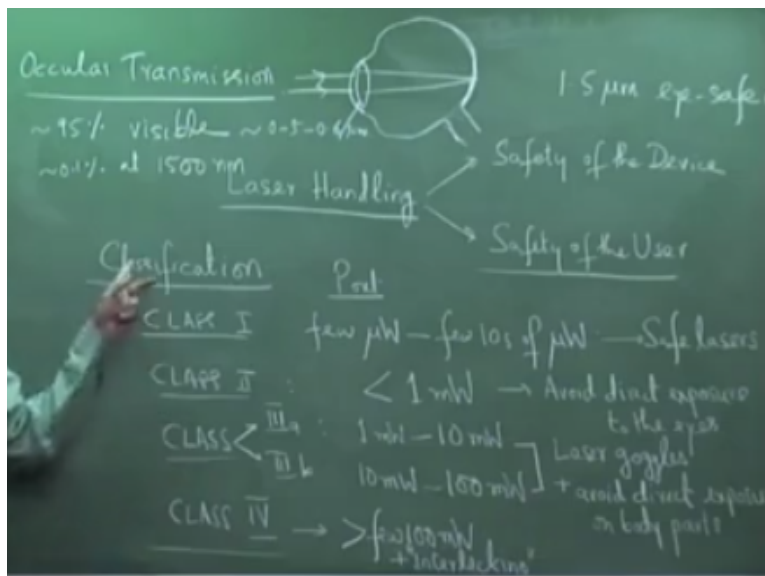 Occular Transmission
1.5 μm eye-safe
~95% visible ~ 0.5-0.6μm
~0.1% at 1500 nm
Laser Handling
Safety of the Device
Safety of the User
Classification Pout
CLASS I few μW – few 10s of μW → Safe lasers
CLASS II : < 1 mW → Avoid direct exposure
to the eyes
CLASS IIIa : 1 mW – 10 mW
IIIb 10 mW – 100 mW
Laser goggles
+ avoid direct exposure
on body parts
CLASS IV → > few 100 mW
+ "interlocking"